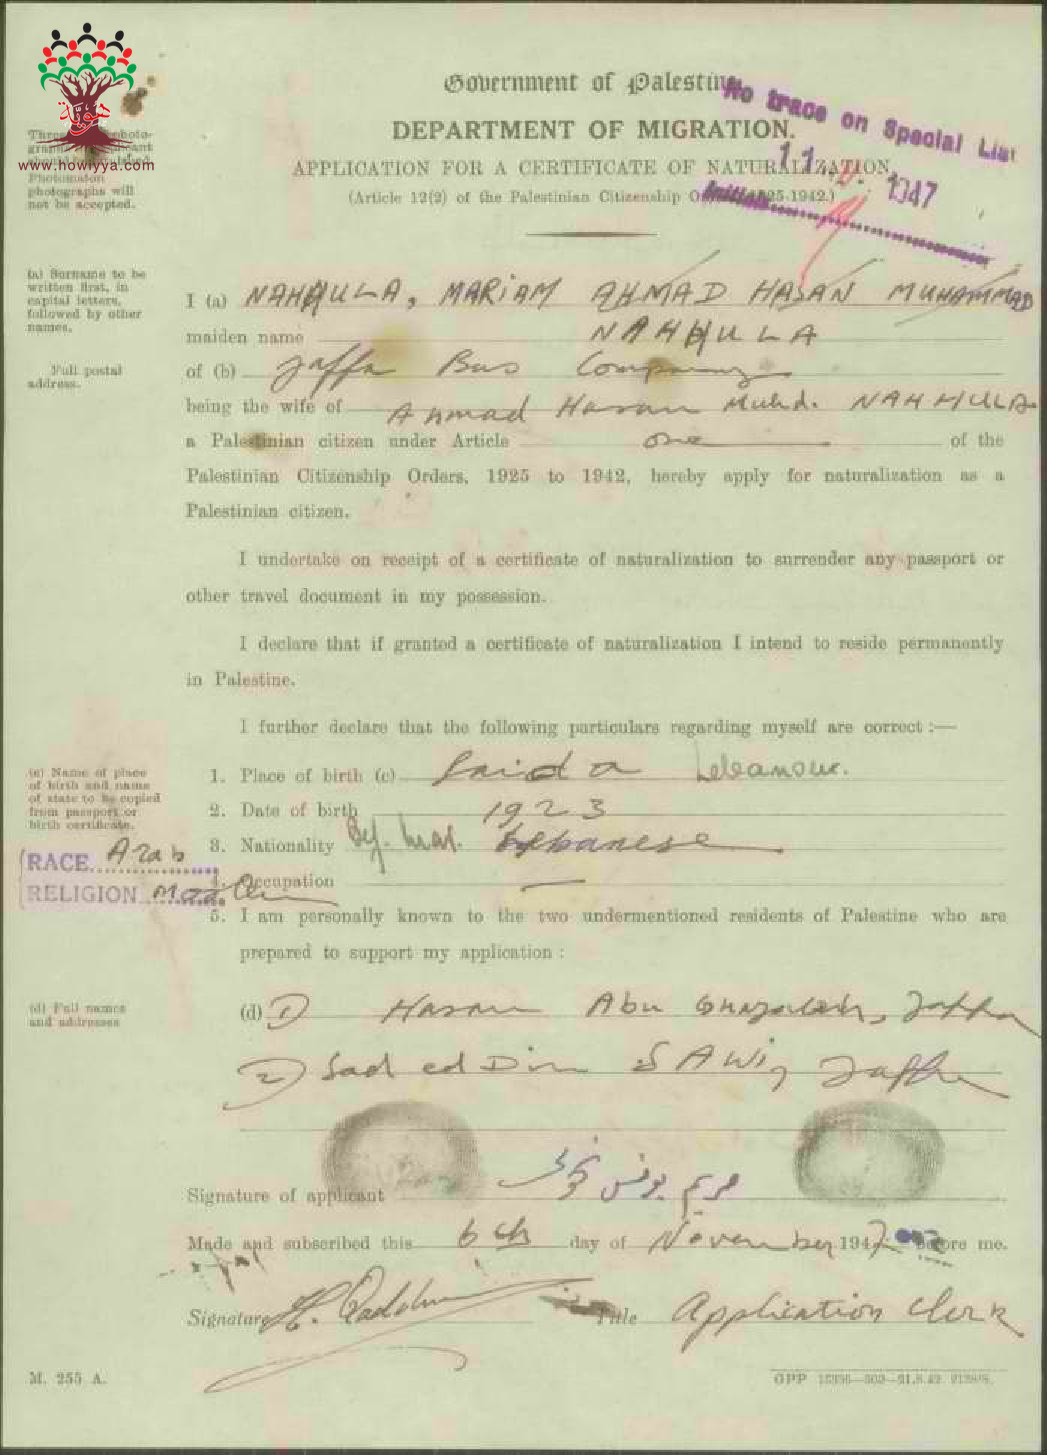 Government of Palestine
DEPARTMENT OF MIGRATION.
APPLICATION FOR A CERTIFICATE OF NATURALIZATION.
(Article 12(2) of the Palestinian Citizenship Orders, 1925-1942.)
No trace on Special List
11 1947
Initials
www.howiyya.com
photographs will
not be accepted.
(a) Surname to be
written first, in
capital letters,
followed by other
names.
I (a) NAHHULA, MARIAM AHMAD HASAN MUHAMMAD
maiden name NAHHULA
Full postal
address.
of (b) Jaffa Bus Company
being the wife of Ahmad Hasan Muhd. NAHHULA
a Palestinian citizen under Article one of the
Palestinian Citizenship Orders, 1925 to 1942, hereby apply for naturalization as a
Palestinian citizen.
I undertake on receipt of a certificate of naturalization to surrender any passport or
other travel document in my possession.
I declare that if granted a certificate of naturalization I intend to reside permanently
in Palestine.
I further declare that the following particulars regarding myself are correct :—
(c) Name of place
of birth and name
of state to be copied
from passport or
birth certificate.
1. Place of birth (c) Saida Lebanon.
2. Date of birth 1923
3. Nationality By. mar. Lebanese
RACE Arab
4. Occupation —
RELIGION Moslem
5. I am personally known to the two undermentioned residents of Palestine who are
prepared to support my application :
(d) Full names
and addresses
(d) 1) Hasan Abu Ghazaleh, Jaffa
2) Sad ed Din SAWi, Jaffa
Signature of applicant مريم
Made and subscribed this 6th day of November 1947 before me.
Signature Title Application Clerk
M. 255 A.
GPP